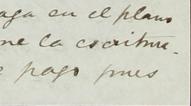 aga en el plano
ne la escritura.
e pago pues